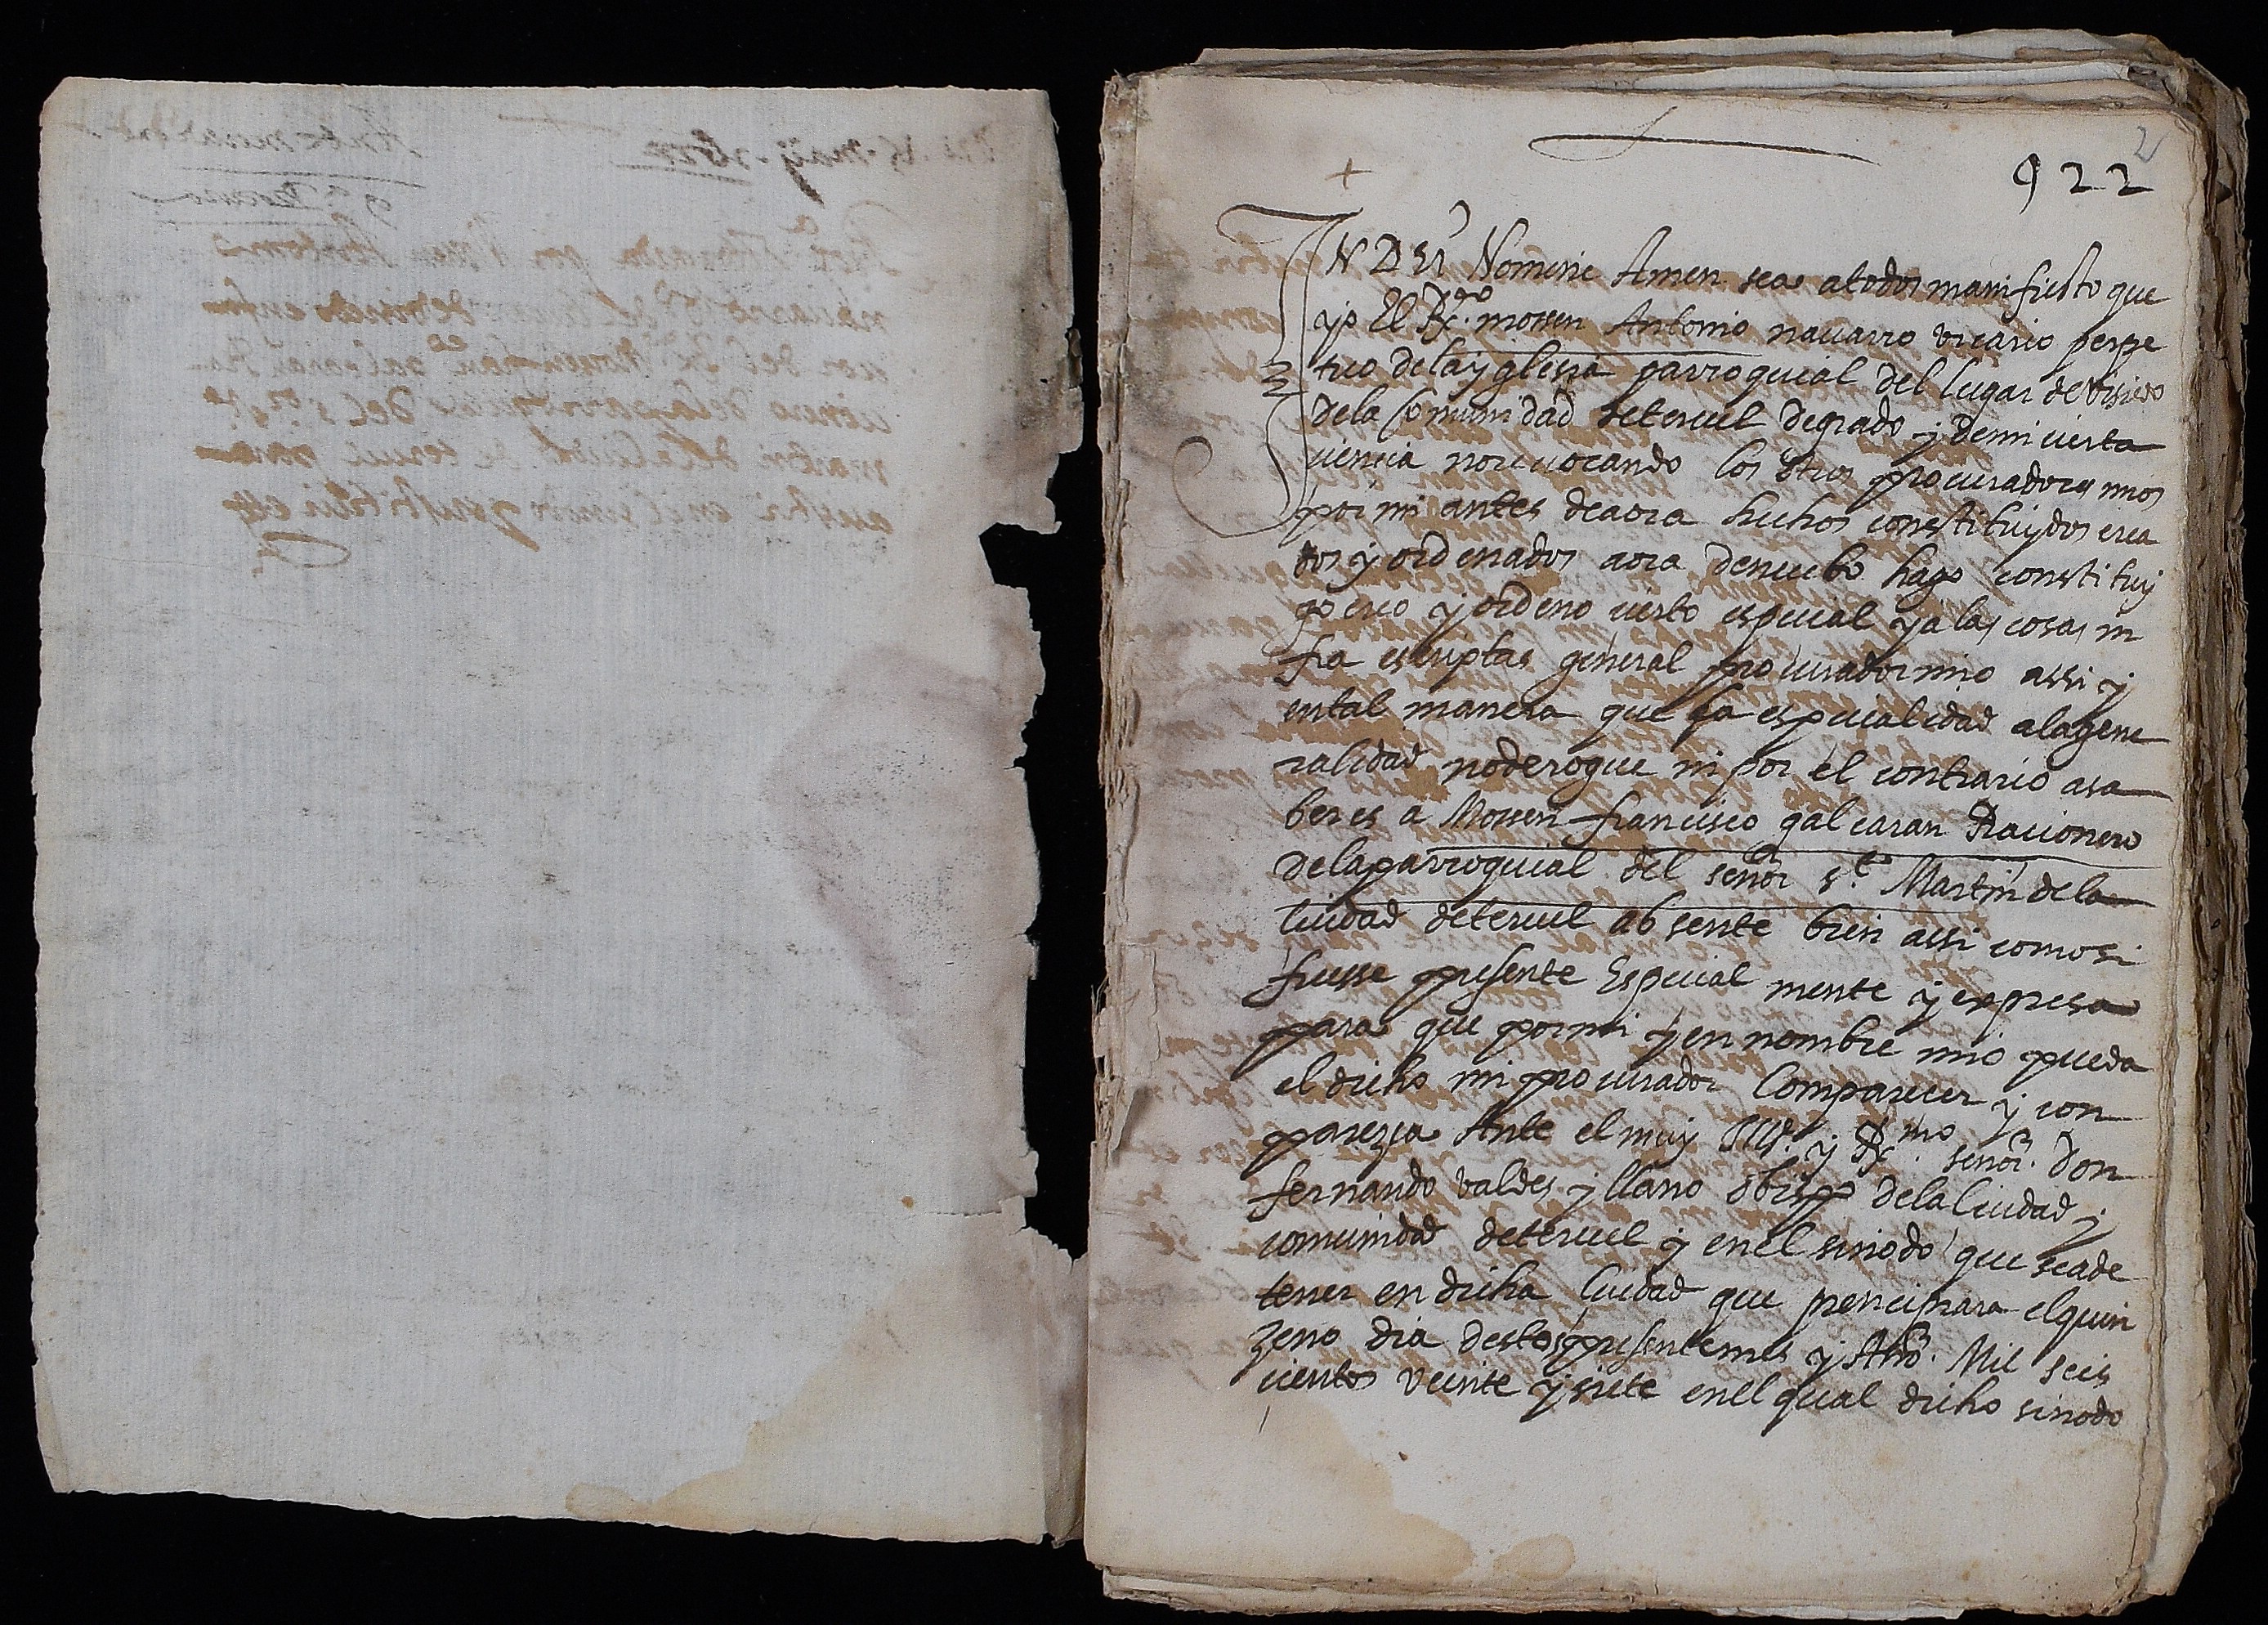 2
922
IN DEI Nomine Amen sea atodos manifiesto que
yo El Rdo. mossen Antonio nauarro vicario perpe
tuo delayglesia parroquial del lugar de visiedo
dela Comunidad deteruel degrado y demi cierta
ciencia noreuocando los otros procuradores mios
por mi antes deaora hechos constituydos crea
dos y ordenados aora denuebo hago constituy
go creo y ordeno cierto especial y a las cosas in
fra escriptas general procurador mio assi y
ental manera que la especialidad alagene
ralidad noderogue ni por el contrario asa
ber es a Mossen francisco galcaran Racionero
delaparroquial del señor st. Martin dela
Ciudad deteruel absente bien assi comosi
fuesse presente Especial mente y expresa
para que pormi y en nombre mio pueda
el dicho mi procurador Comparecer y con
parezca Ante el muy Illе. y Rmo. señor. Don
fernando valdes y llano obispo dela Ciudad y
comunidad deteruel y enel sinodo que seade
tener en dicha Ciudad que prencipiara elquin
zeno dia destos presentemes y Año. Mil seis
cientos veinte y siete enel qual dicho sinodo